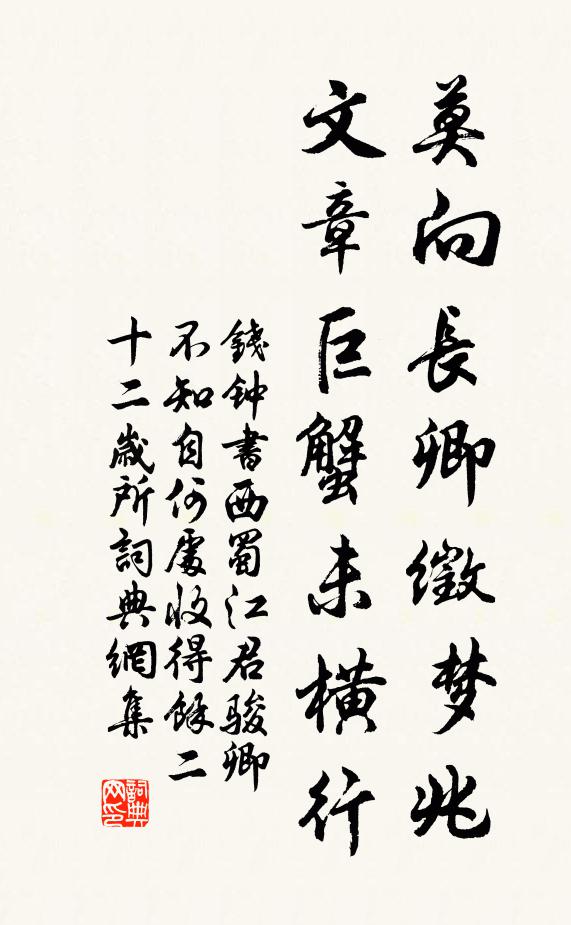 莫向長卿徵梦兆
文章巨蟹未橫行
錢钟書西蜀江君骏卿
不知自何處收得餘二
十二歲所詞典網集
詞典网印